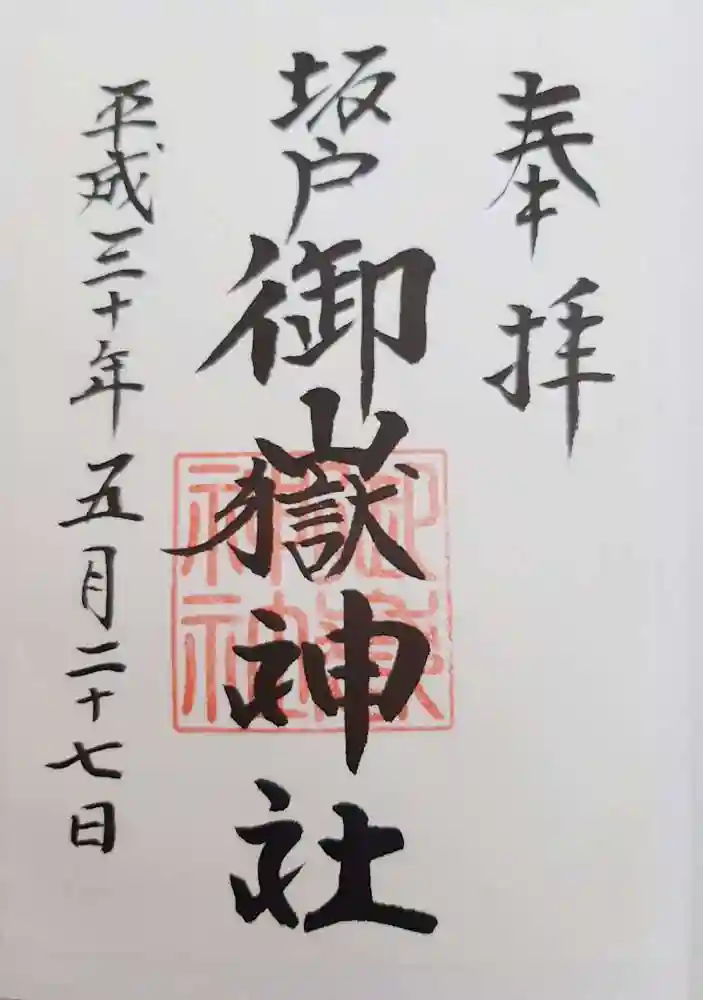 奉拝
坂戸御嶽神社
平成三十年五月二十七日